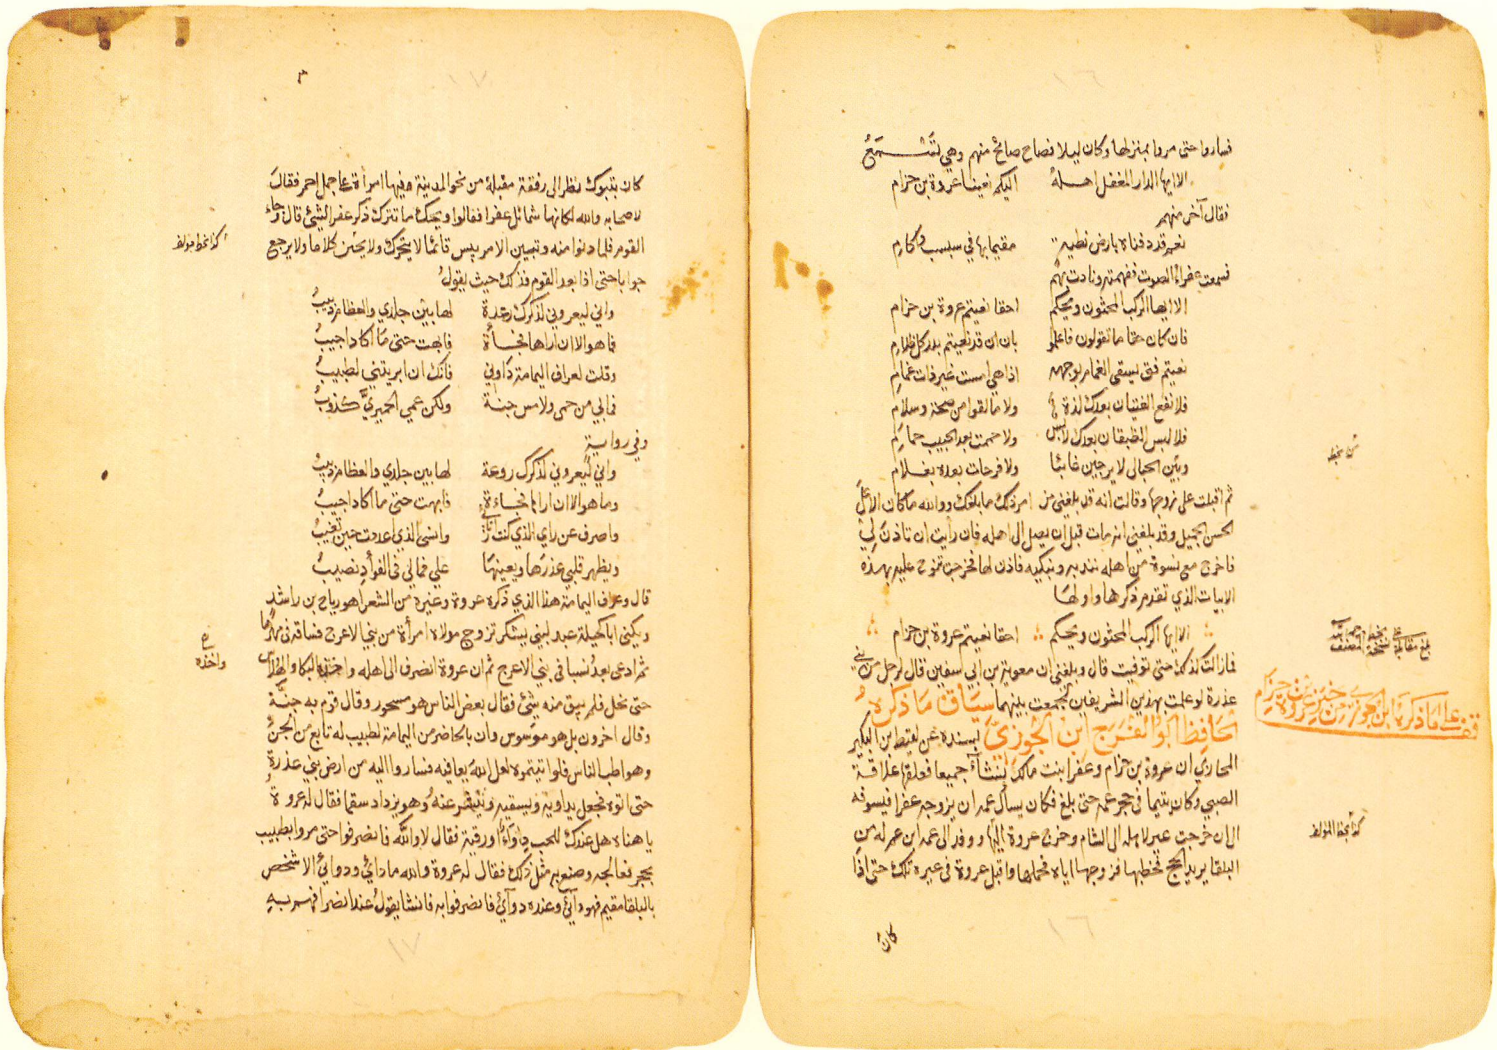 ١٦
فساروا حتى مروا بمنزلها وكان ليلا فصاح صائح منهم وهي تسمع
الا ايها الدار المغفل اهله اليكم نعينا عروة بن حزام
فقال آخر منهم
نعم قد دفناه بارض نطية مقيما بها في سبسب واكام
فسمعت عفراء الصوت ففهمته ونادت بهم
الا ايها الركب المحثون ويحكم احقا نعيتم عروة بن حزام
فان كان حقا ما تقولون فاعلموا بان قد نعيتم بدر كل ظلام
نعيتم فتى يسقى الغمام بوجهه اذا هي امست غير ذات غمام
فلا نفع الفتيان بعدك لذة ولا ما لقوا من صحة وسلام
ولا حمت بعد الحبيب حمام
وبين الحبالى لا يرجين غائبا ولا فرحات بعده بغلام
ثم اقبلت على زوجها وقالت انه قد بلغني من امر ذلك ما بلغك ووالله ما كان الا على
الحسن الجميل وقد بلغني انه مات قبل ان يصل الى اهله فان رايت ان تاذن لي
فاخرج مع نسوة من اهله نندبه ونبكيه فاذن لها فخرجت تنوح عليه بهذه
الابيات الذي تقدم ذكرها واولها
الا ايها الركب المحثون ويحكم احقا نعيتم عروة بن حزام
فما زالت كذلك حتى توفيت قال وبلغني ان معوية بن ابي سفين قال لرجل من بني
عذرة لو علمت بهذين الشريفين لجمعت بينهما سياق ما ذكره
الحافظ ابو الفرج ابن الجوزي بسنده عن لقيط ابن البكير
المحاربي ان عروة بن حزام وعفرا بنت مالك نشآ جميعا فعلقها علاقة
الصبي وكان يتيما في حجر عمه حتى بلغ فكان يسأل عمه ان يزوجه عفرا فيسوفه
الى ان خرجت عير لاهله الى الشام وخرج عروة اليها ووفد الى عمه ابن عم له من
البلقا يريد الحج فخطبها فزوجها اياه فحملها واقبل عروة في عيره تلك حتى اذا
كان
كذا بخط
بلغ مقابلة على نسخة بخط المصنف
قف على ما ذكره ابن الجوزي من خبر عروة بن حزام
كذا بخط المؤلف
١٦
١٧
٣
كان بتبوك نظر الى رفقة مقبلة من نحو المدينة وفيها امرأة على جمل احمر فقال
لاصحابه والله لكانها شمائل عفرا فقالوا ويحك ما تترك ذكر عفر الشئ قال وجاء
القوم فلما دنوا منه وتبين الامر يبس قائما لا يتحرك ولا يحسن كلاما ولا يرجع
جوابا حتى اذا بعد القوم فذلك حيث يقول
واني ليعروني لذكرك رعدة لها بين جلدي والعظام دبيب
فما هو الا ان اراها فجأة فابهت حتى ما اكاد اجيب
وقلت لعراف اليمامة داوني فانك ان ابريتني لطبيب
فما بي من حمى ولا مس جنة ولكن عمي الحميري كذوب
وفي رواية
واني ليعروني لذكرك روعة لها بين جلدي والعظام دبيب
وما هو الا ان اراها فجاءة فابهت حتى ما اكاد اجيب
واصرف عن رايي الذي كنت وانسى الذي اعددت حين تغيب
ويظهر قلبي عذرها ويعينها علي فما لي في الفؤاد نصيب
قال وعراف اليمامة هذا الذي ذكره عروة وغيره من الشعرا هو رياح بن راشد
ويكنى ابا كحيلة عبد لبني يشكر تزوج مولاه امرأة من بني الاعرج فساقه في مهرها
ثم ادعى بعد نسبا في بني الاعرج ثم ان عروة انصرف الى اهله واخذه البكا والهلاس
حتى نحل فلم يبق منه شئ فقال بعض الناس هو مسحور وقال قوم به جنة
وقال اخرون بل هو موسوس وان بالحاضر من اليمامة لطبيب له تابع من الجن
وهو اطب الناس فلو اتيتموه لعل الله يعافيه فساروا اليه من ارض بني عذرة
حتى اتوه فجعل يداويه ويسقيه وينشر عنه وهو يزداد سقما فقال له عروة
يا هناه هل عندك للحب دواء او رقية فقال لا والله فانصرفوا حتى مروا بطبيب
بحجر فعالجه وصنع به مثل ذلك فقال له عروة والله ما دائي ودوائي الا شخص
بالبلقا مقيم فهو دائي وعنده دوآئي فانصرفوا به فانشا يقول عند انصرافهم به
كذا بخط مؤلفه
واخذه
١٧